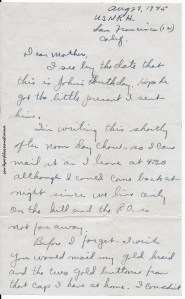 Aug 29, 1945
U.S.N.R.H.
San Francisco (12)
Calif.
Dear Mother,
I see by the date that
this is John's birthday. Hope he
got the little present I sent
him.
I'm writing this shortly
after noon day chow, so I can
mail it as I leave at 4:30
although I could come back at
night since we live only
on the hill and the P.O. is
not far away.
Before I forget - I wish
you would mail my gold braid
and the two gold buttons from
that cap I have at home. I